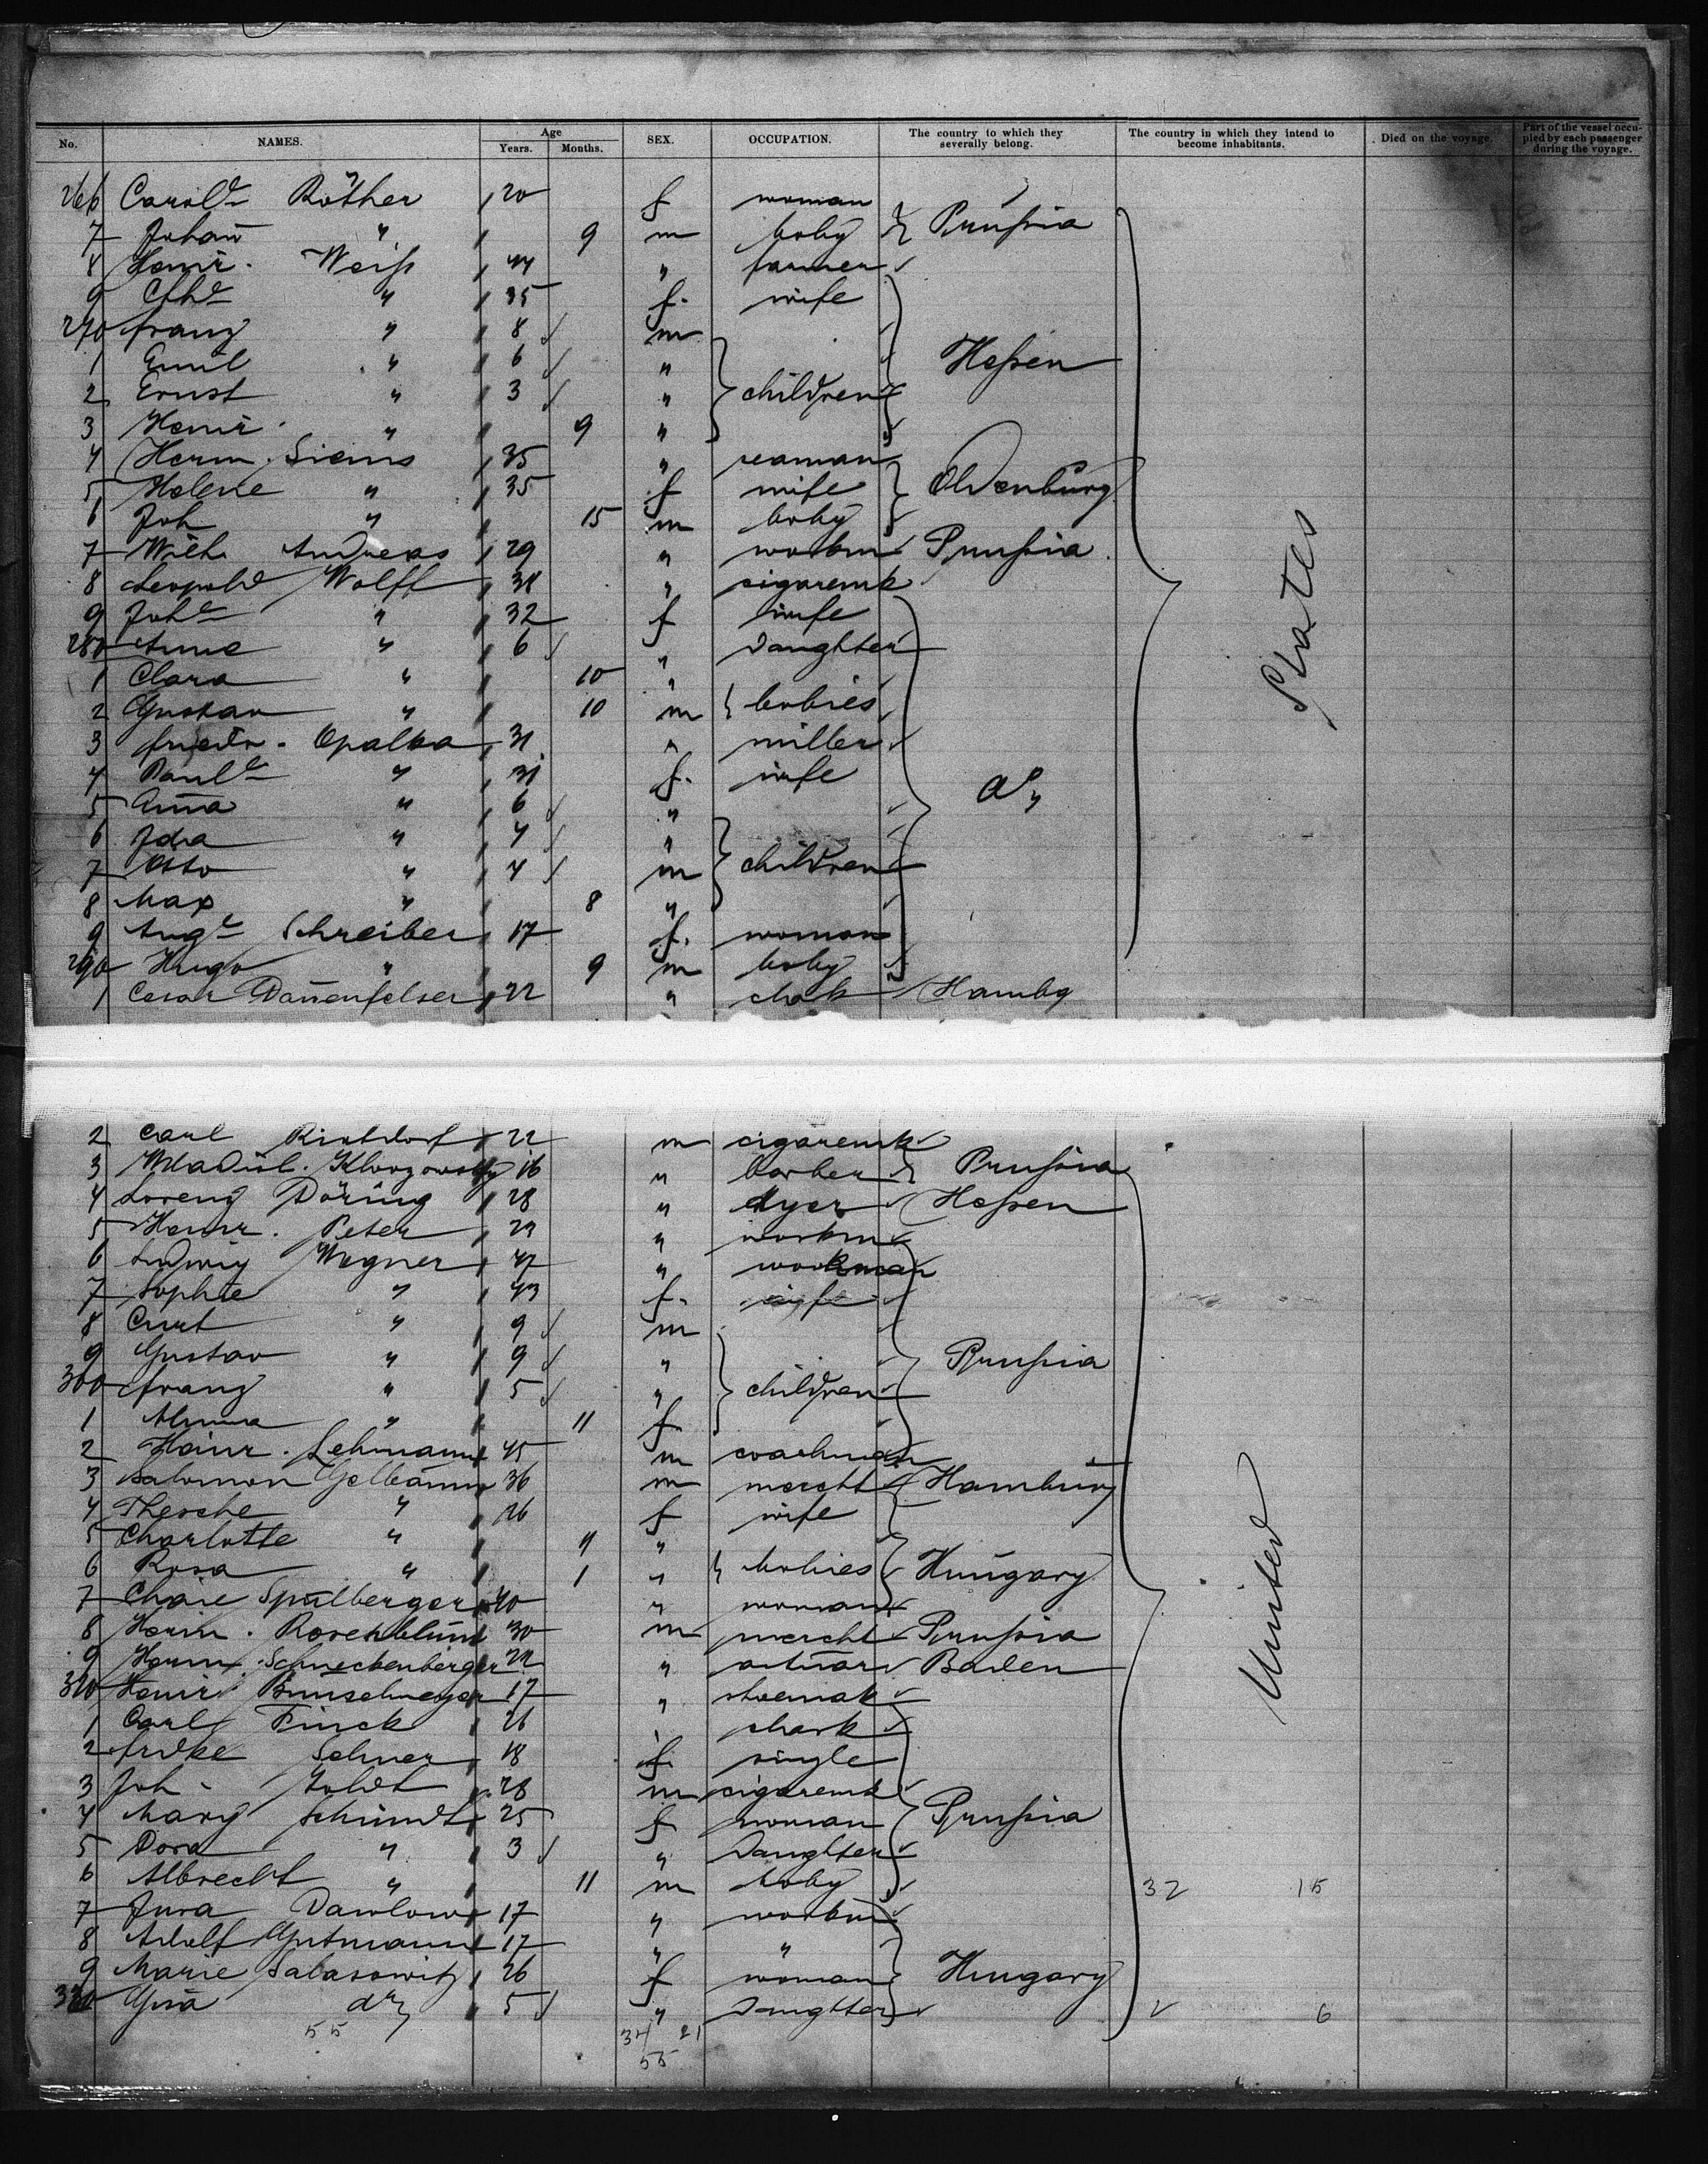 No. NAMES. Age Years. Months. SEX. OCCUPATION. The country to which they severally belong. The country in which they intend to become inhabitants. Died on the voyage. Part of the vessel occupied by each passenger during the voyage.
266 Carole Röther 20 f woman
7 Johañ " 9 m baby } Prussia
8 Heinr. Weiss 44 " farmer
9 Cthe " 35 f. wife
270 Franz " 8 m
1 Emil " 6 " Hessen
2 Ernst " 3 " children
3 Heinr. " 9 "
4 Herm. Siems 35 " seaman
5 Helene " 35 f wife Oldenburg
6 Joh " 15 m baby
7 Wilh. Andreas 29 " workm Prussia
8 Leopold Wolff 38 " cigaremk
9 Johe " 32 f wife
280 Anna " 6 " Daughter
1 Clara " 10 "
2 Gustav " 10 m babies
3 Friedr. Opalka 31 " miller
4 Paule " 31 f. wife do
5 Aña " 6 "
6 Ida " 4 "
7 Otto " 4 m children
8 Max " 8 "
9 Auge Schreiber 17 f. woman
290 Hugo " 9 m baby
1 Cesar Dañenfelser 22 " Hambg
States
2 Carl 22 m cigaremk
3 Wladisl. 16 " barber } Prussia
4 Lorenz Döring 28 " dyer Hessen
5 Heinr. Peter 29 " workm
6 Ludwig Wegner 47 " workman
7 Sophie " 43 f. wife
8 Curt " 9 m
9 Gustav " 9 " Prussia
300 Franz " 5 " children
1 Alma " 11 f
2 Heinr. Lehmann 45 m coachman
3 Salomon Gelbaum 36 m mercht Hamburg
4 Therese " 26 f wife
5 Charlotte " 11 "
6 Rosa " 1 " babies Hungary
7 Chaie Spulberger 40 " woman
8 Herm. Rosenblum 30 m mercht Prussia
9 Herm. Schneckenberger 22 " actuar Baden
310 Heinr. 17 " shoemak
1 Carl Finck 26 "
2 Fredke 18 f single
3 Joh. 28 m cigaremk
4 Mary Schmidt 25 f woman Prussia
5 Dora " 3 " Daughter
6 Albrecht " 11 m baby 32 15
7 Jura Dawlow 17 " workm
8 Adolf Gutmann 17 " "
9 Marie Salasowitz 26 f woman Hungary
320 do 5 " Daughter 2 6
United
55 34 21
55